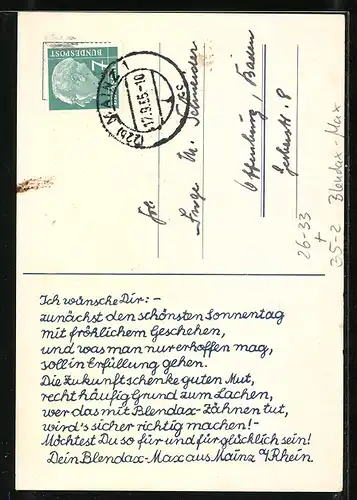 7
DEUTSCHE
BUNDESPOST
(22b) MAINZ 1
17.9.55-10
Frl.
Inge M. Schneider
Offenburg, Baden
26-33
+
35-2 Blendax-Max
Ich wünsche Dir: –
zunächst den schönsten Sonnentag
mit fröhlichem Geschehen,
und was man nur erhoffen mag,
soll in Erfüllung gehen.
Die Zukunft schenke guten Mut,
recht häufig Grund zum Lachen,
wer das mit Blendax-Zähnen tut,
wird's sicher richtig machen! –
Möchtest Du so für und für glücklich sein!
Dein Blendax-Max aus Mainz a/Rhein.